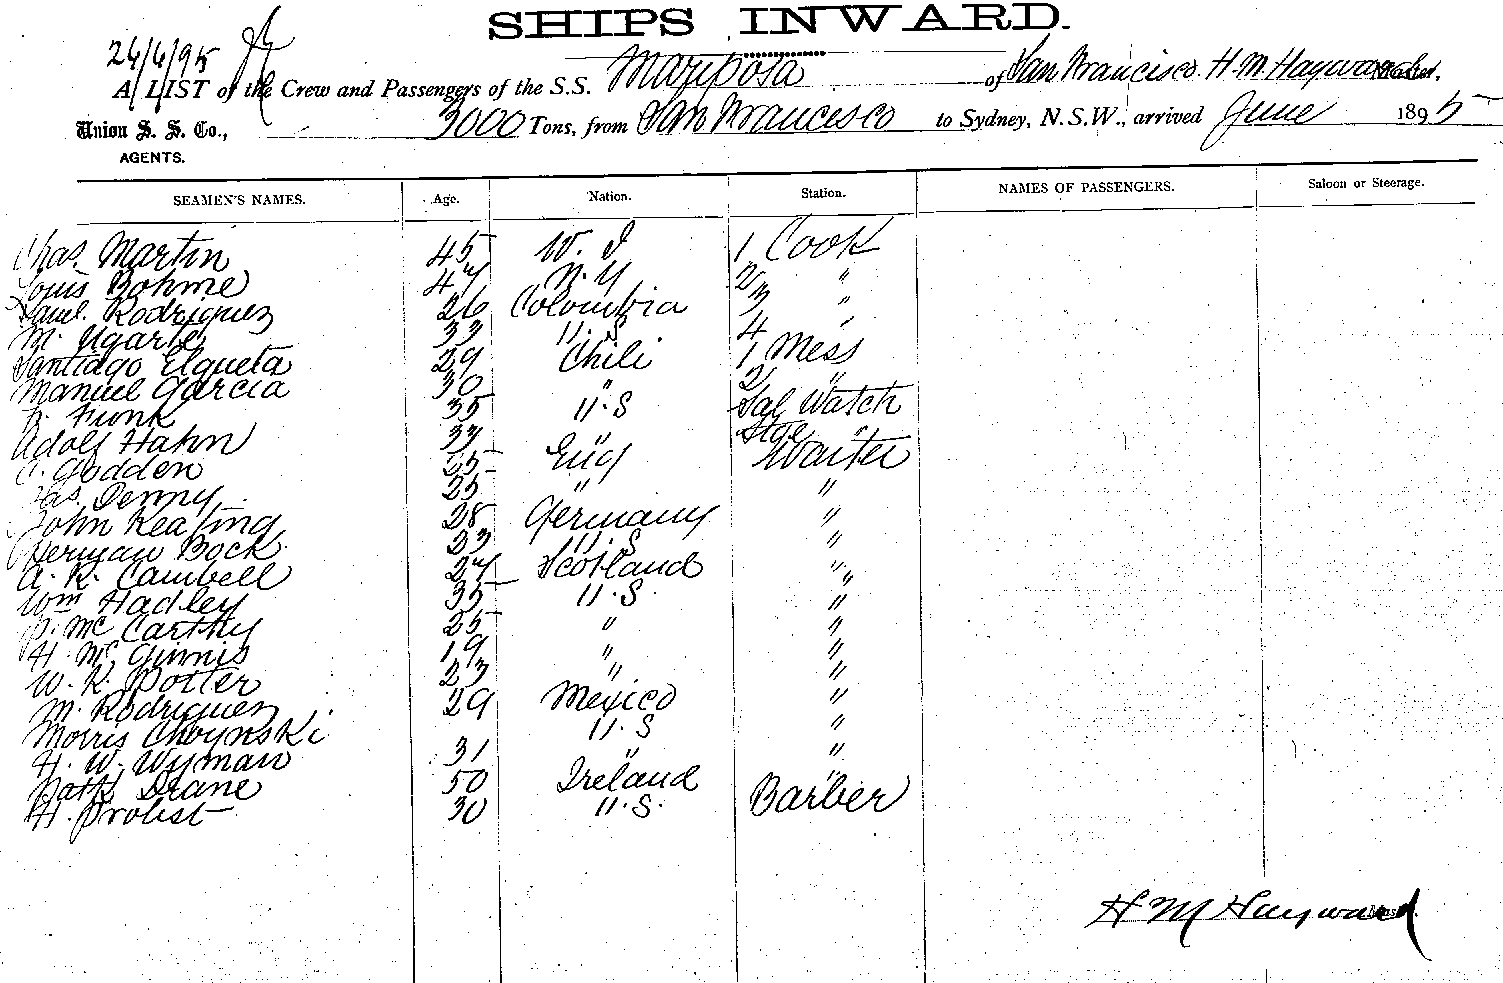 SHIPS INWARD.
24/6/95
A LIST of the Crew and Passengers of the S.S. Mariposa of San Francisco. H. M. Hayward Master,
Union S. S. Co., 3000 Tons, from San Francesco to Sydney, N.S.W., arrived June 1895
AGENTS.
SEAMEN'S NAMES. Age. Nation. Station. NAMES OF PASSENGERS. Saloon or Steerage.
Chas. Martin 45 W. I 1 Cook
Louis Bohme 47 N. Y 2 "
Saml. Rodriguez 26 Colombia 3 "
M. Ugarte 33 U. S 4 "
Santiago Elgueta 29 Chili 1 Mess
Manuel Garcia 30 " 2 "
Funk 35 U. S Sal Watch
Adolf Hahn 37 " Stge "
C. Godden 25 Eng Waiter
Chas. Denny 25 " "
John Keating 28 Germany "
Herman Bock 23 U. S "
A. K. Cambell 27 Scotland "
Wm Hadley 35 U. S. "
P. McCarthy 25 " "
H. McGinnis 19 " "
W. K. Potter 23 " "
M. Rodriguez 29 Mexico "
Morris Choynski U. S "
H. W. Wyman 31 " "
Patk Deane 50 Ireland "
H. Probst 30 U. S. Barber
H M Hayward